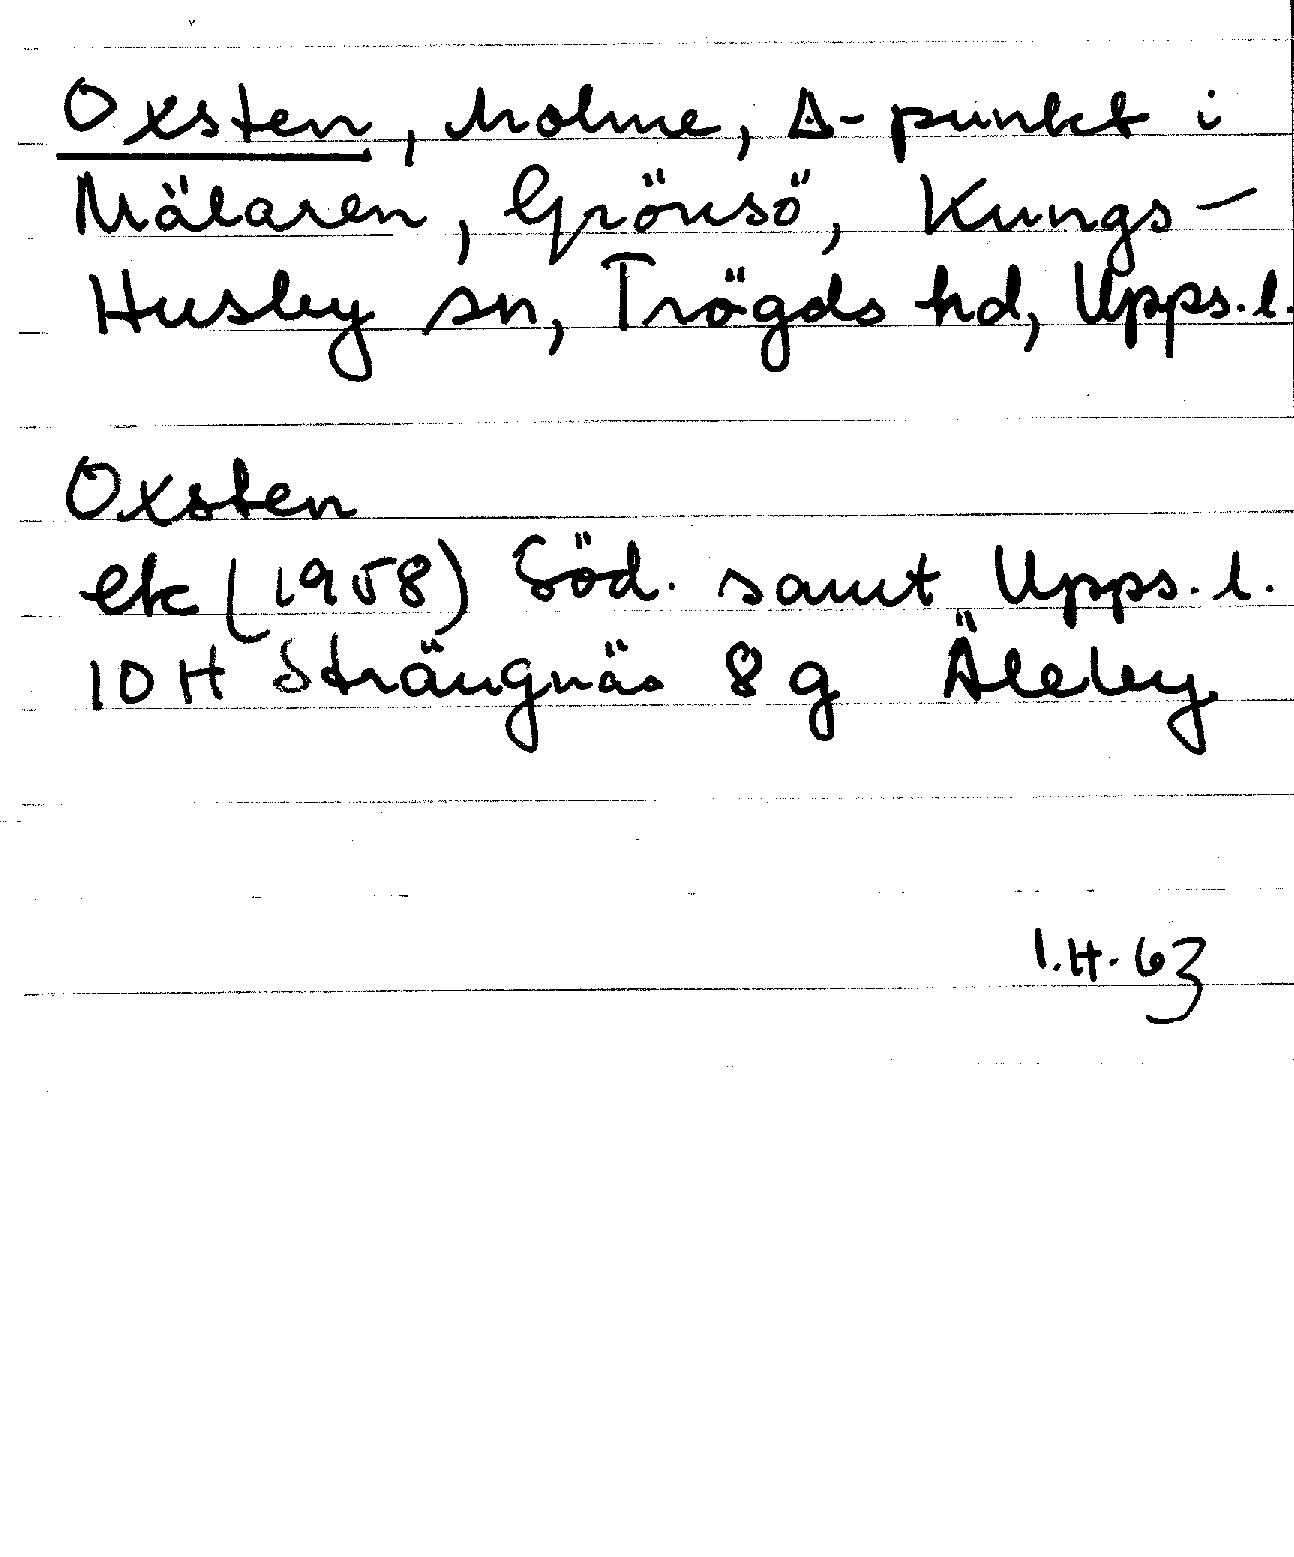 Oxsten, holme, Δ-punkt i
Mälaren, Grönsö, Kungs-
Husby sn, Trögds hd, Upps. l.
Oxsten
ek (1958) Söd. samt Upps. l.
10 H Strängnäs 8 g Äleby
I.H. 63